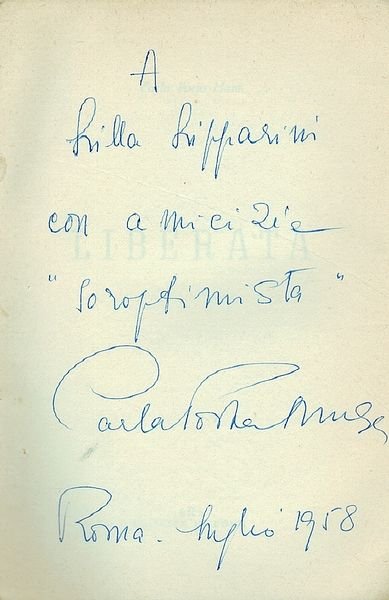 Carla Porta Musa
A
Lilla Lipparini
con amicizia
LIBERATA
"soroptimista"
Carla Porta Musa
Roma. luglio 1958